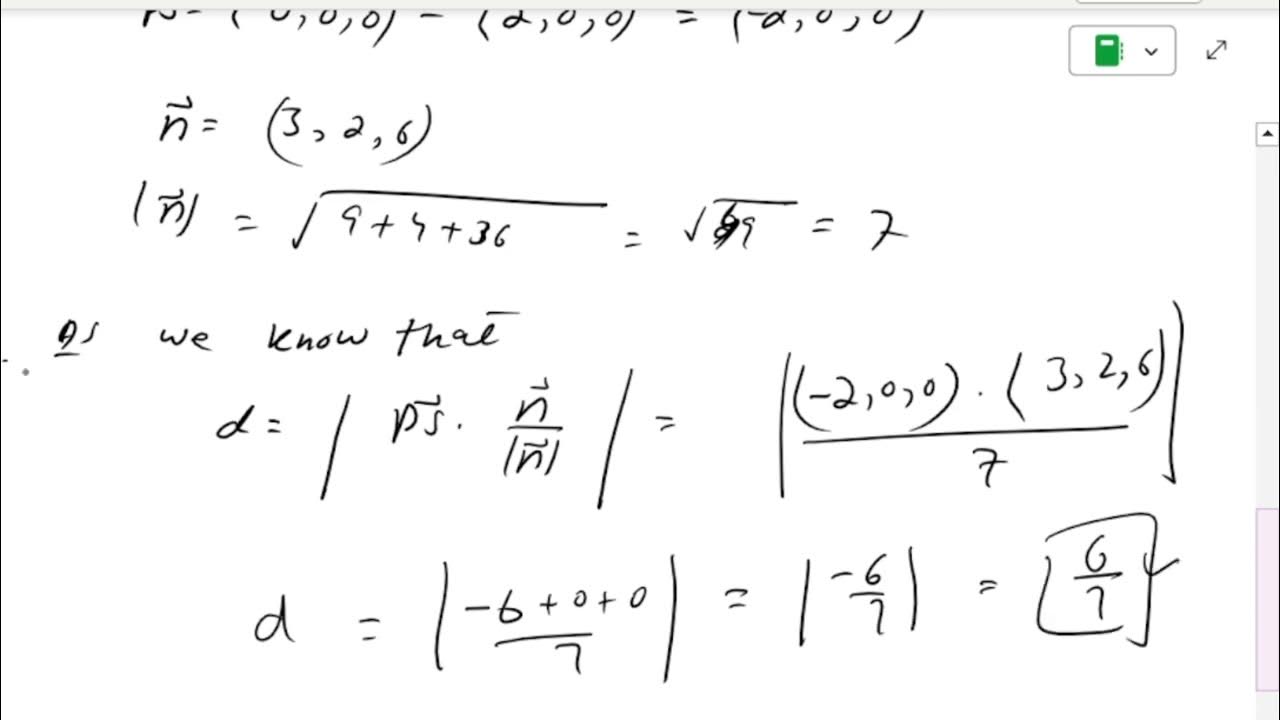 (0,0,0) - (2,0,0) = (-2,0,0)
n⃗ = (3, 2, 6)
|n⃗| = √(9+4+36) = √49 = 7
As we know that
d = | PS⃗ · n⃗/|n⃗| | = | (-2,0,0) · (3,2,6) / 7 |
d = | -6+0+0 / 7 | = | -6/7 | = 6/7